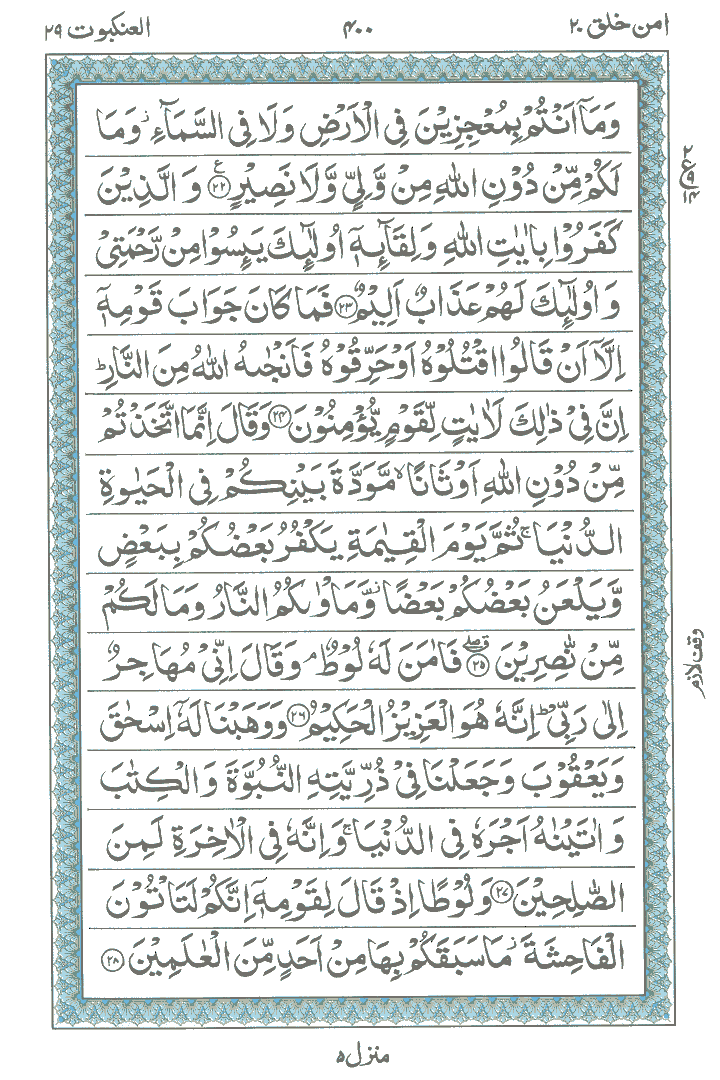 امن خلق ۲۰
۴۰۰
العنکبوت ۲۹
وَمَاۤ اَنْتُمْ بِمُعْجِزِیْنَ فِی الْاَرْضِ وَلَا فِی السَّمَآءِ ؗ وَمَا
لَكُمْ مِّنْ دُوْنِ اللّٰهِ مِنْ وَّلِیٍّ وَّلَا نَصِیْرٍ ﴿۲۲﴾ ع وَ الَّذِیْنَ
كَفَرُوْا بِاٰیٰتِ اللّٰهِ وَ لِقَآئِهٖۤ اُولٰٓئِكَ یَئِسُوْا مِنْ رَّحْمَتِیْ
وَ اُولٰٓئِكَ لَهُمْ عَذَابٌ اَلِیْمٌ ﴿۲۳﴾ فَمَا كَانَ جَوَابَ قَوْمِهٖۤ
اِلَّاۤ اَنْ قَالُوا اقْتُلُوْهُ اَوْ حَرِّقُوْهُ فَاَنْجٰىهُ اللّٰهُ مِنَ النَّارِ ؕ
اِنَّ فِیْ ذٰلِكَ لَاٰیٰتٍ لِّقَوْمٍ یُّؤْمِنُوْنَ ﴿۲۴﴾ وَقَالَ اِنَّمَا اتَّخَذْتُمْ
مِّنْ دُوْنِ اللّٰهِ اَوْثَانًا ۙ مَّوَدَّةَ بَیْنِكُمْ فِی الْحَیٰوةِ
الدُّنْیَا ۚ ثُمَّ یَوْمَ الْقِیٰمَةِ یَكْفُرُ بَعْضُكُمْ بِبَعْضٍ
وَّیَلْعَنُ بَعْضُكُمْ بَعْضًا ؗ وَّمَاْوٰىكُمُ النَّارُ وَمَا لَكُمْ
مِّنْ نّٰصِرِیْنَ ﴿۲۵﴾ فَاٰمَنَ لَهٗ لُوْطٌ ۘ وَقَالَ اِنِّیْ مُهَاجِرٌ
اِلٰی رَبِّیْ ؕ اِنَّهٗ هُوَ الْعَزِیْزُ الْحَكِیْمُ ﴿۲۶﴾ وَوَهَبْنَا لَهٗۤ اِسْحٰقَ
وَیَعْقُوْبَ وَجَعَلْنَا فِیْ ذُرِّیَّتِهِ النُّبُوَّةَ وَالْكِتٰبَ
وَ اٰتَیْنٰهُ اَجْرَهٗ فِی الدُّنْیَا ۚ وَاِنَّهٗ فِی الْاٰخِرَةِ لَمِنَ
الصّٰلِحِیْنَ ﴿۲۷﴾ وَلُوْطًا اِذْ قَالَ لِقَوْمِهٖۤ اِنَّكُمْ لَتَاْتُوْنَ
الْفَاحِشَةَ ؗ مَا سَبَقَكُمْ بِهَا مِنْ اَحَدٍ مِّنَ الْعٰلَمِیْنَ ﴿۲۸﴾
وقف لازم
منزل ۵